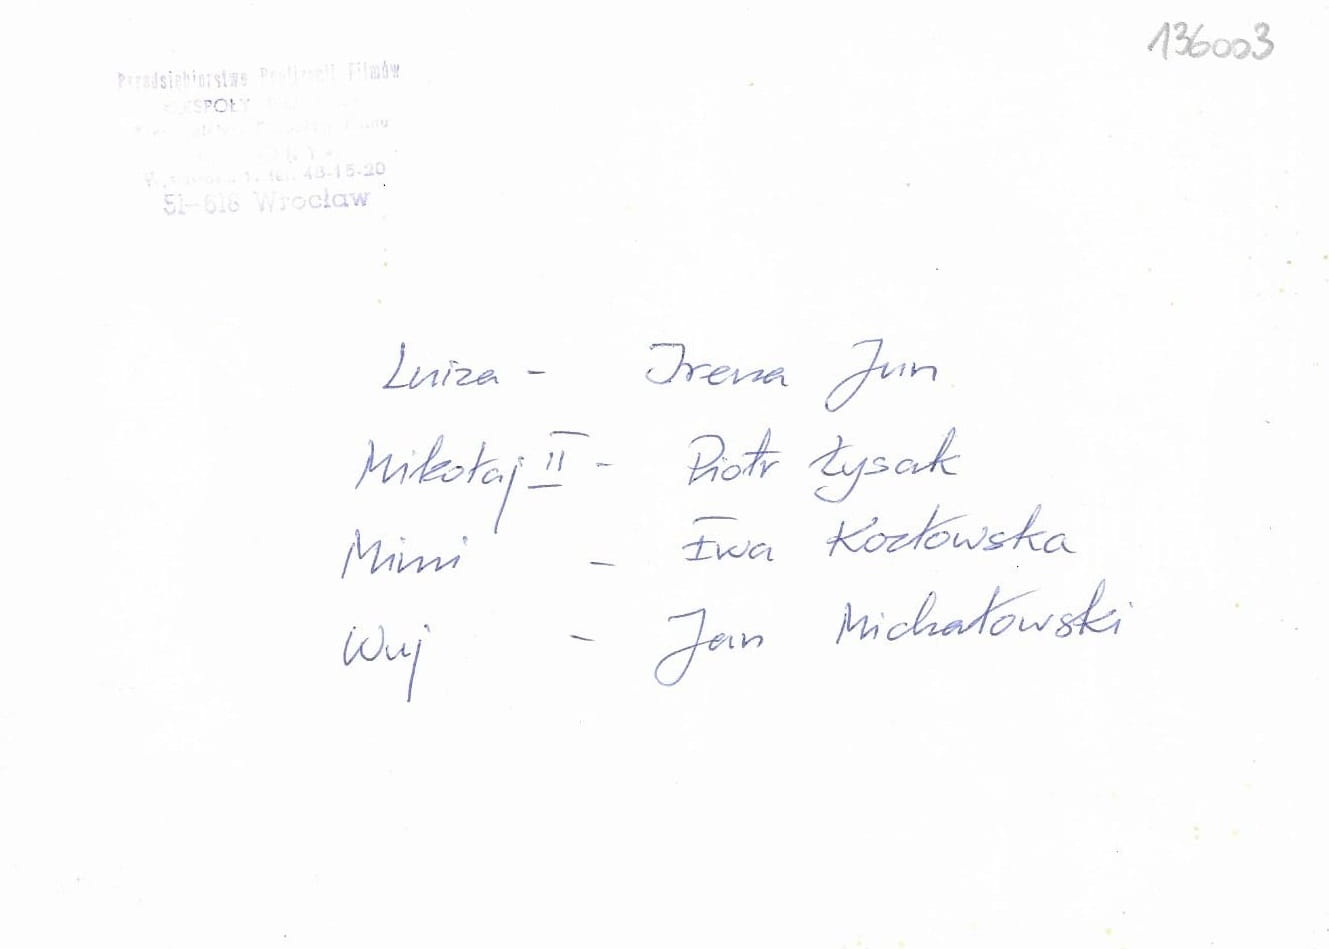 136003
Przedsiębiorstwo Realizacji Filmów
ZESPOŁY
tel. 48-15-20
51-618 Wrocław
Luiza - Irena Jun
Mikołaj II - Piotr Łysak
Mimi - Ewa Kozłowska
Wuj - Jan Michałowski